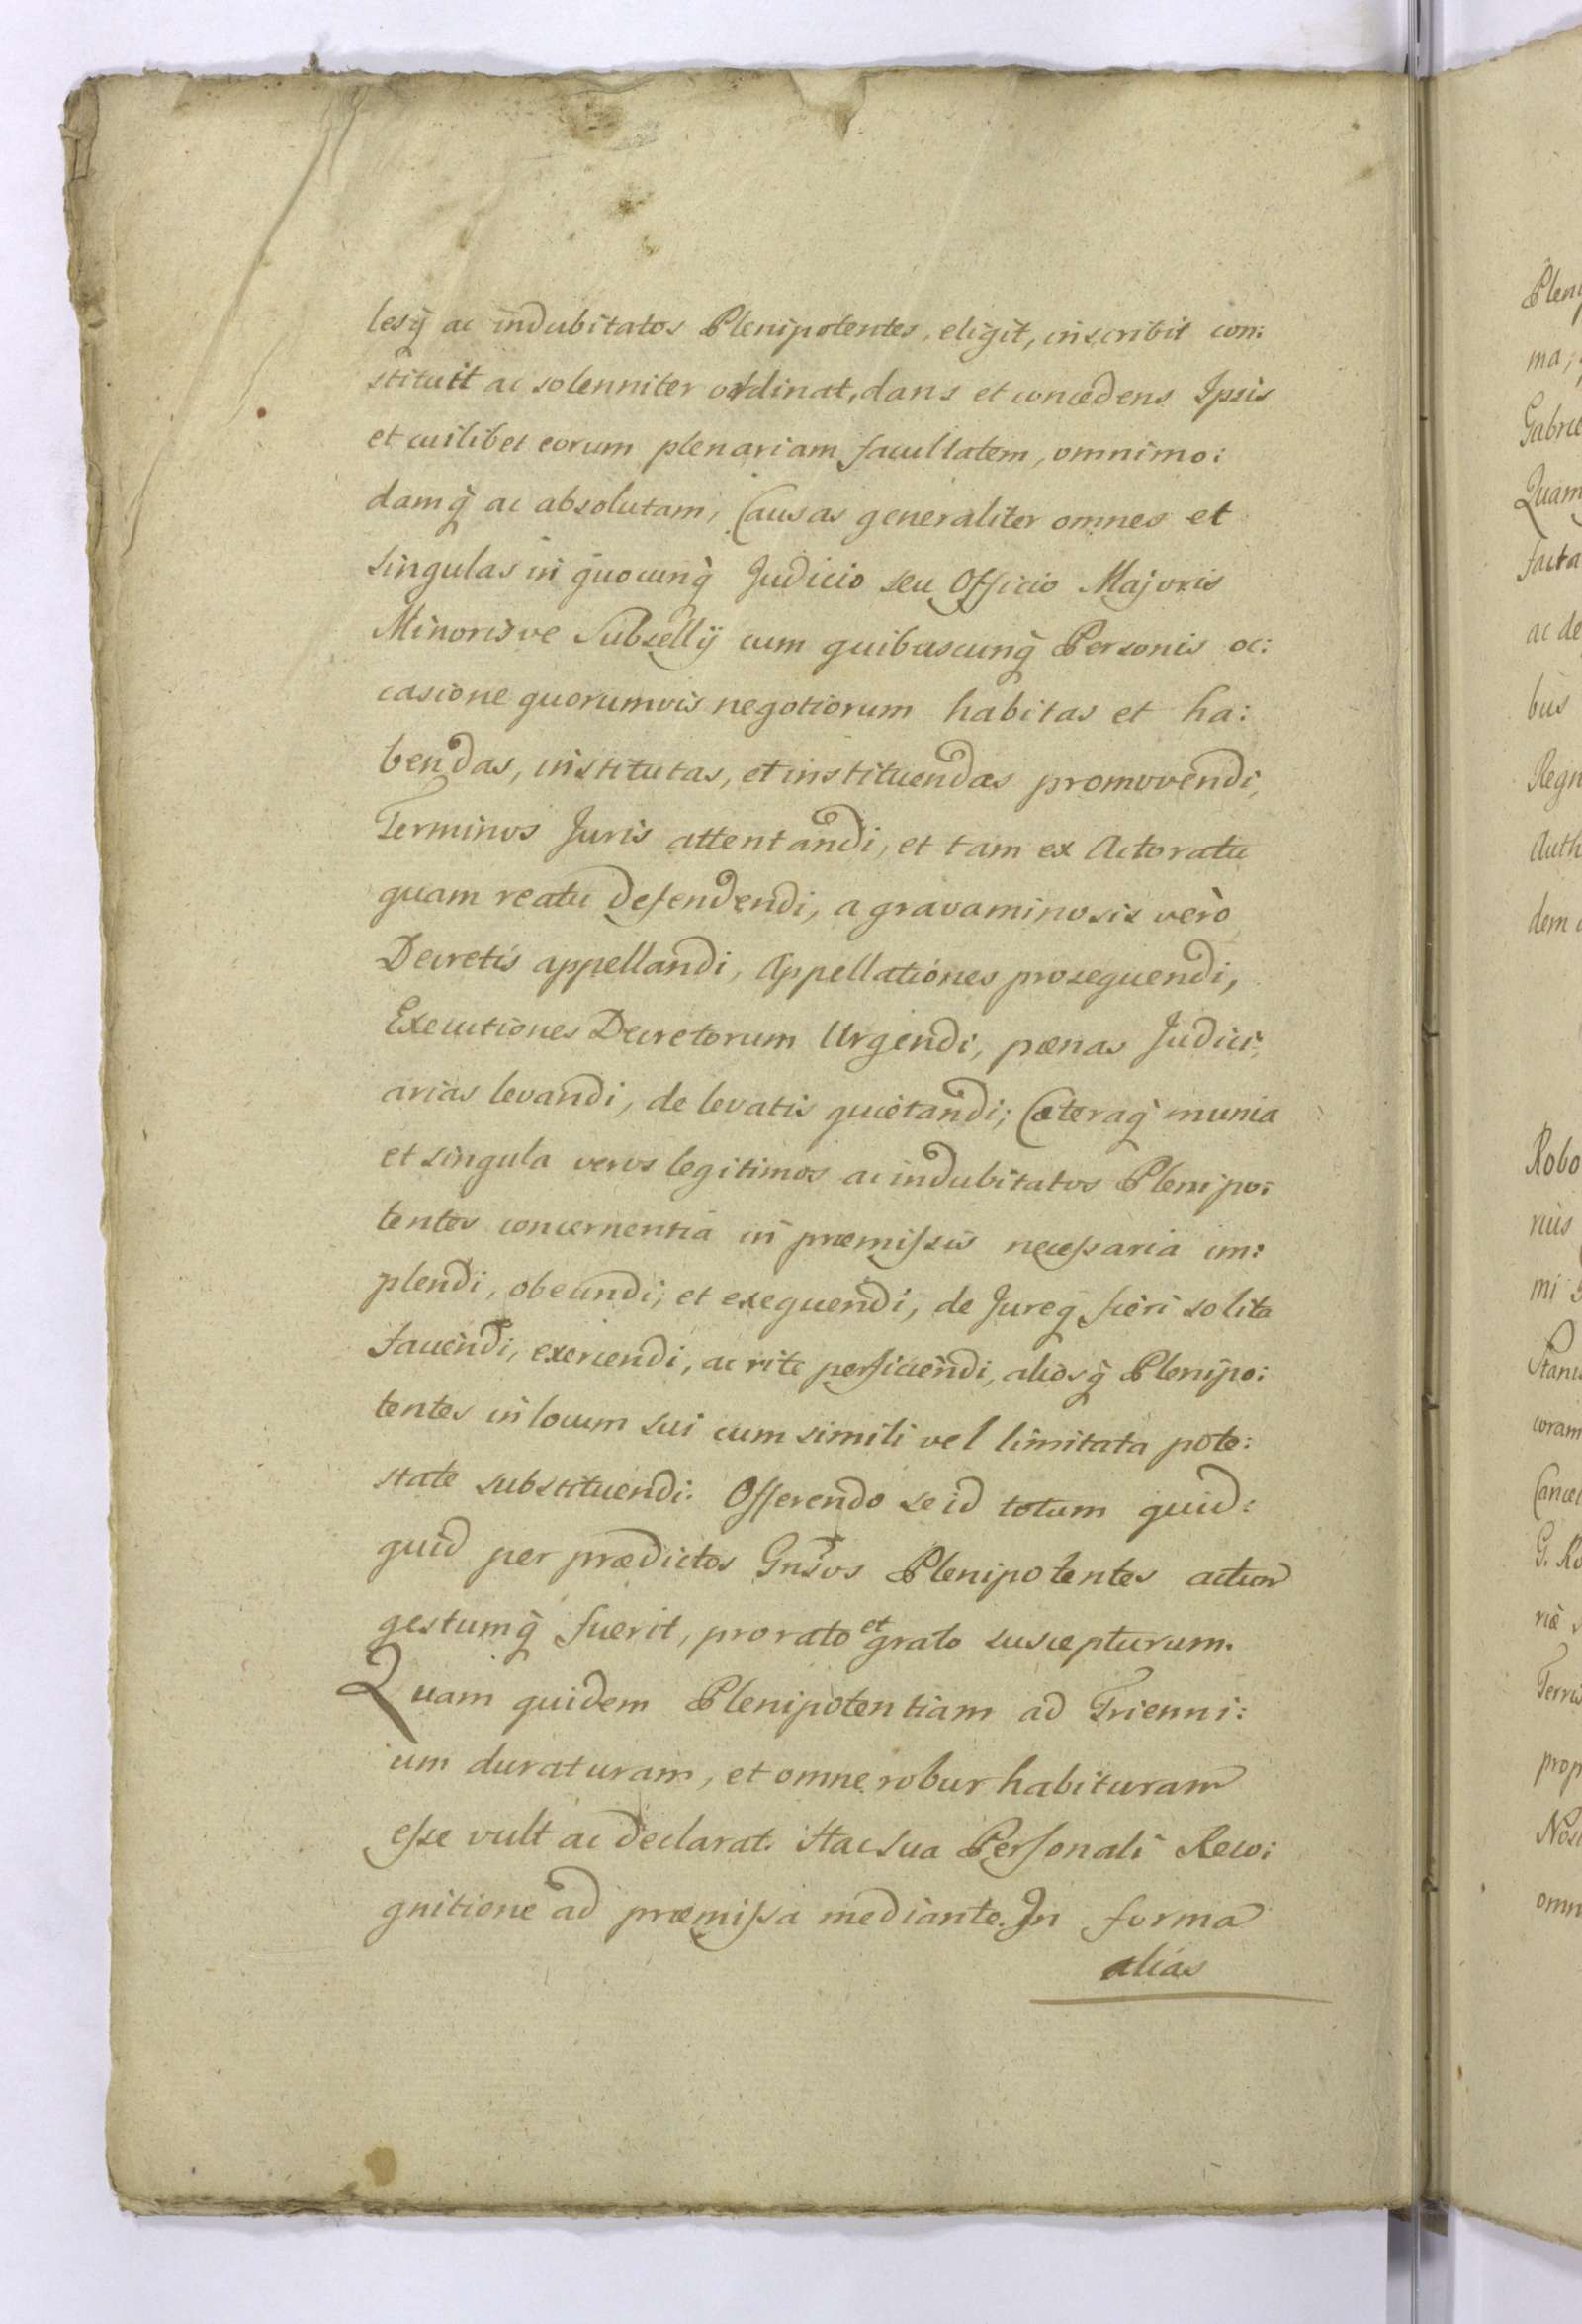 lesq̀ ac indubitatos Plenipotentes, eligit, inscribit con:
stituit ac solenniter ordinat, dans et concedens Ipsis
et cuilibet eorum plenariam facultatem, omnimo:
damq̀ ac absolutam, Causas generaliter omnes et
singulas in quocunq̀ Judicio seu Officio Majoris
Minorisve Subsellij cum quibuscunq̀ Personis oc:
casione quorumvis negotiorum habitas et ha:
bendas, institutas, et instituendas promovendi,
Terminos Juris attentandi, et tam ex Actoratu
quam reatu defendendi, a gravaminosis verò
Decretis appellandi, Appellationes prosequendi,
Executiones Decretorum Urgendi, pœnas Judici:
arias levandi, de levatis quietandi; Cæteraq̀ munia
et singula veros legitimos ac indubitatos Plenipo:
tentes concernentia in præmissis necessaria im:
plendi, obeundi, et exequendi, de Jureq̀ fieri solita
faciendi, exercendi, ac rite perficiendi, aliosq̀ Plenipo:
tentes in locum sui cum simili vel limitata pote:
state substituendi. Offerendo se id totum quid:
quid per prædictos Gnsos Plenipotentes actum
gestumq̀ fuerit, pro rato et grato suscepturum.
Quam quidem Plenipotentiam ad Trienni:
um duraturam, et omne robur habituram
esse vult ac declarat. Hac sua Personali Reco:
gnitione ad præmissa mediante. In forma
alias
Pleni
ma,
Gabrie
Quam
facta
ac de
bus
Regn
Auth
dem
Robo
rius
mi
Stani
coram
Cancel
G. Ro
riæ
Terris
prop
omn